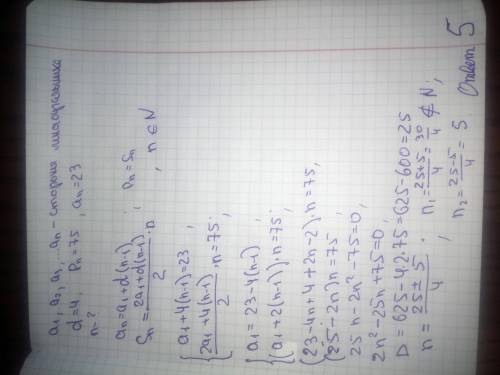 a₁, a₂, a₃, ... aₙ - стороны многоугольника
d=4, Pₙ=75, aₙ=23
n-?
aₙ=a₁+d(n-1)
Sₙ = (2a₁+d(n-1))/2 · n ; Pₙ=Sₙ
, n∈N
{ a₁+4(n-1)=23,
(2a₁+4(n-1))/2 · n=75;
{ a₁=23-4(n-1),
(a₁+2(n-1))·n=75;
(23-4n+4+2n-2)·n=75,
(25-2n)n=75,
25n-2n²-75=0,
2n²-25n+75=0,
D=625-4·2·75=625-600=25
n = (25±5)/4 ; n₁=(25+5)/4=30/4 ∉ N;
, n₂=(25-5)/4=5 Ответ 5